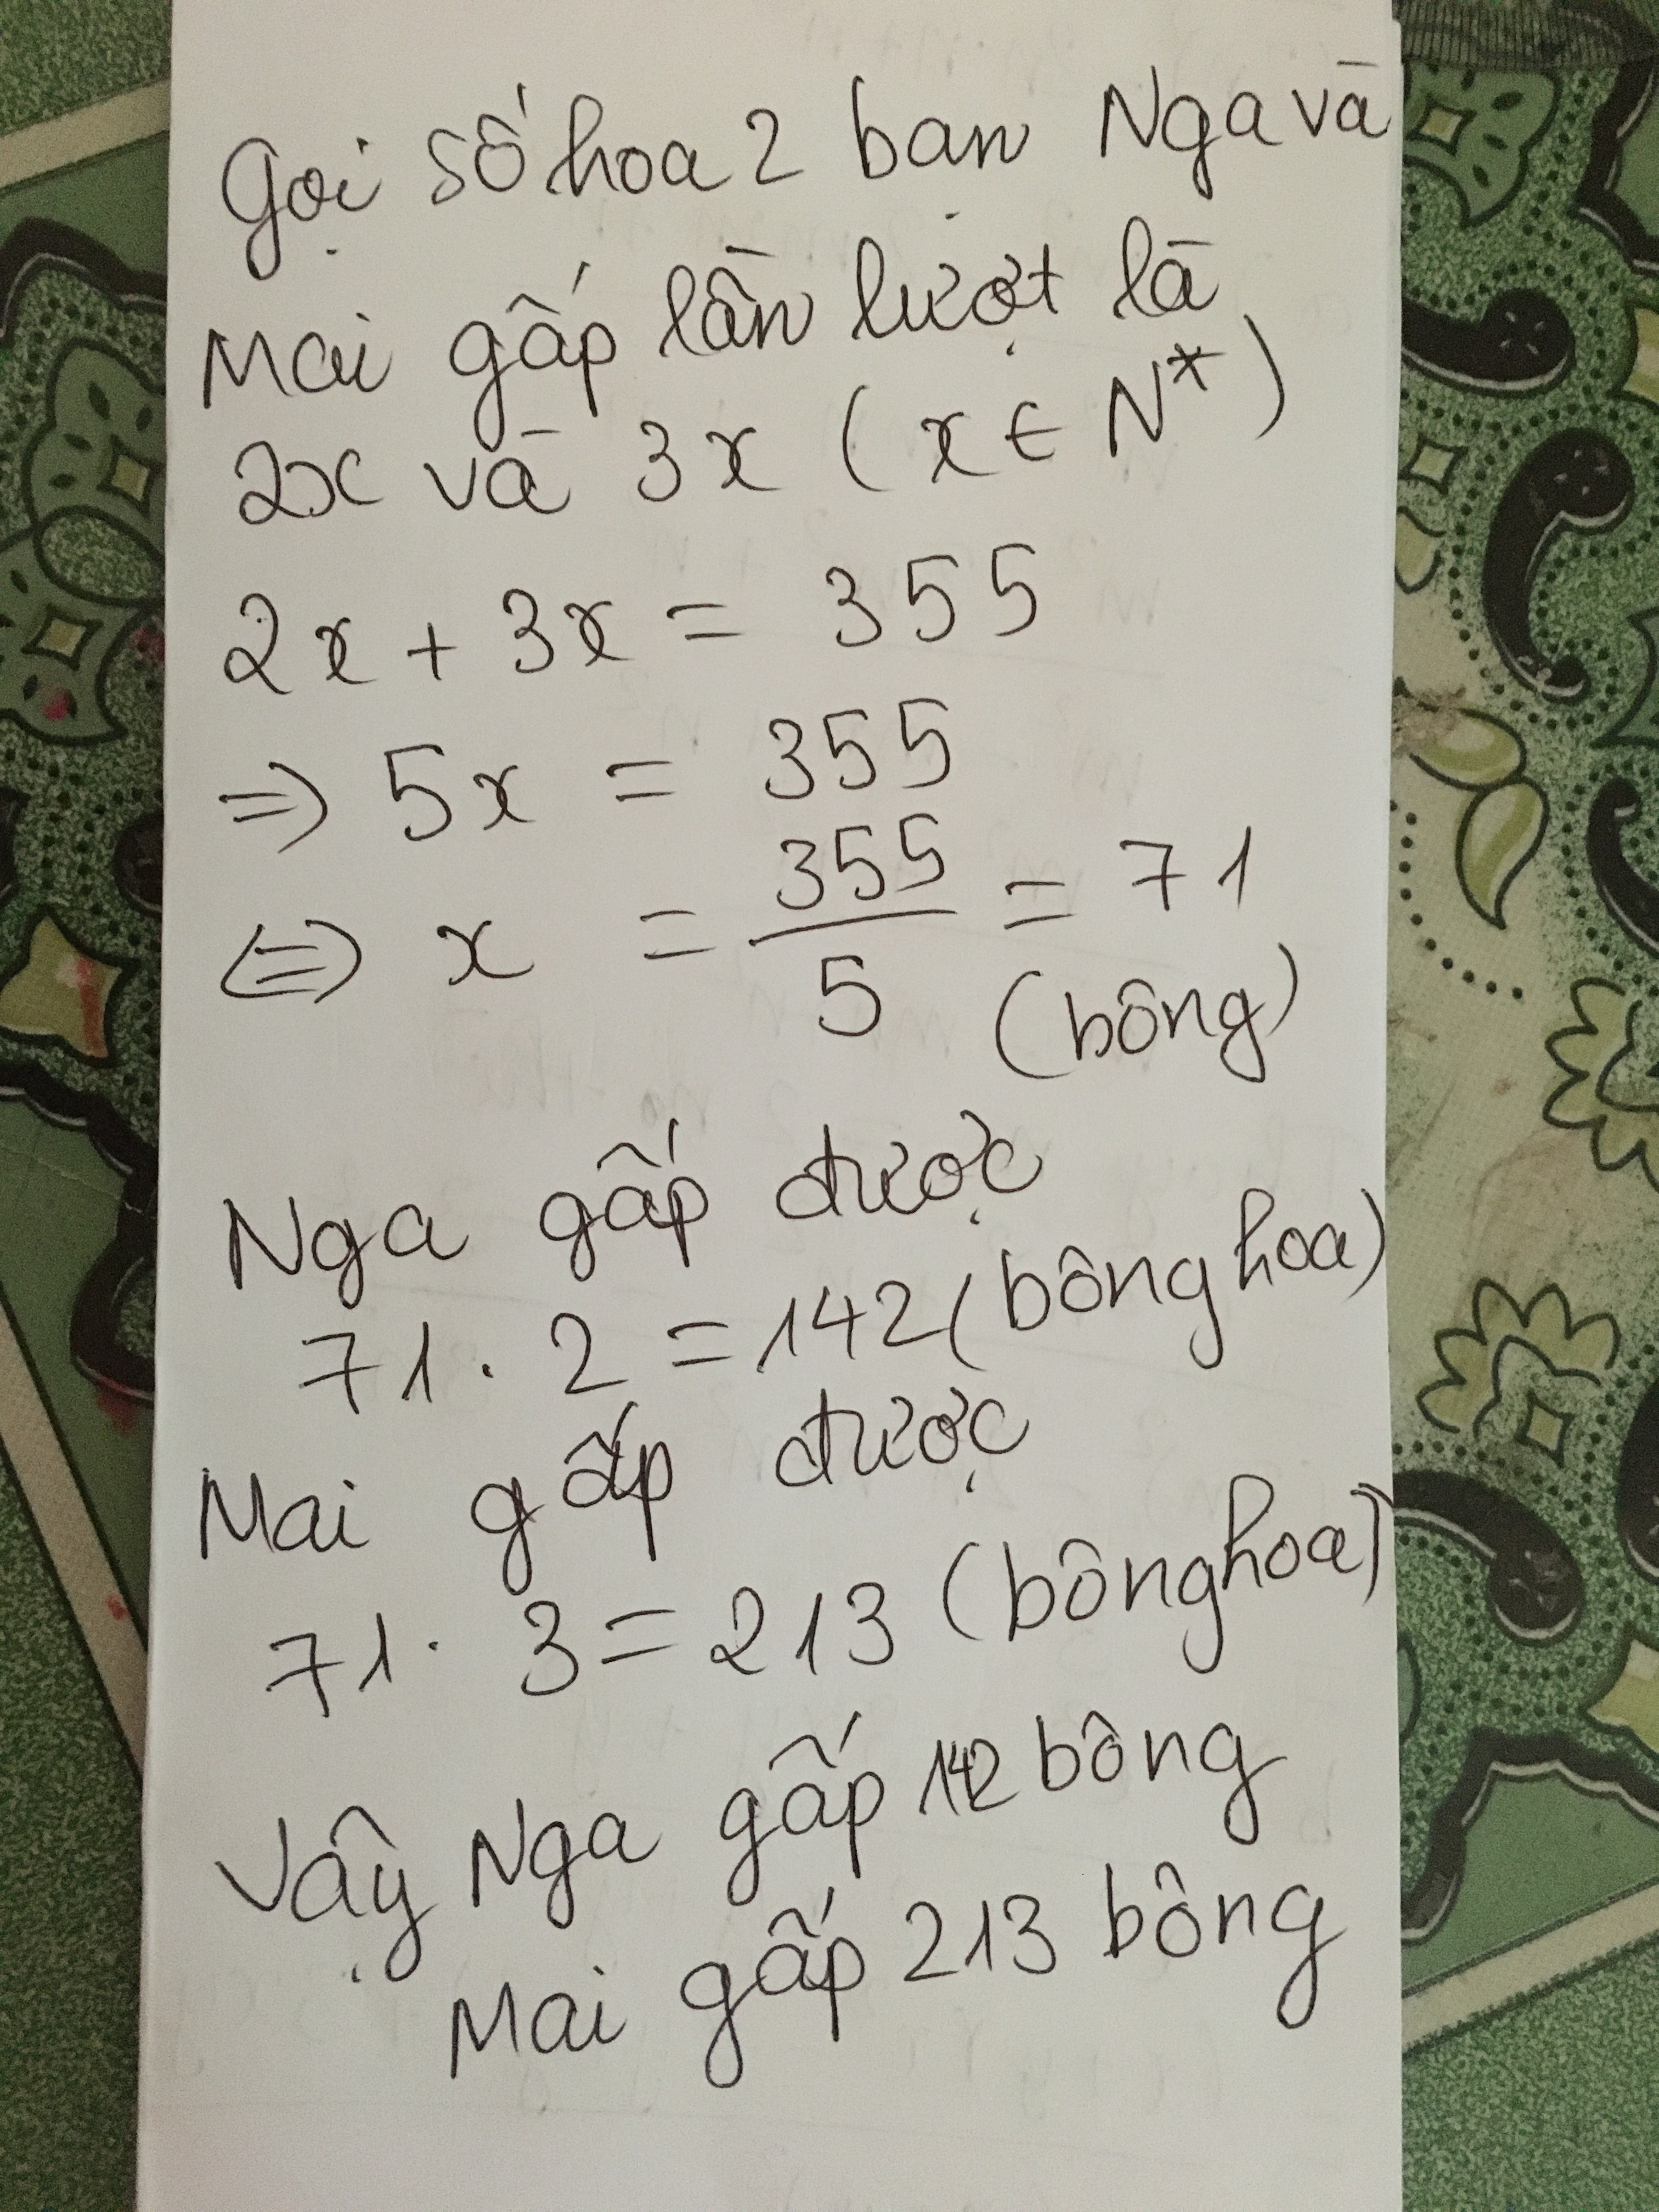 Gọi số hoa 2 bạn Nga và
Mai gấp lần lượt là
2x và 3x (x ∈ N*)
2x + 3x = 355
⇒ 5x = 355
⇔ x = 355/5 = 71
(bông)
Nga gấp được
71 . 2 = 142 (bông hoa)
Mai gấp được
71 . 3 = 213 (bông hoa)
Vậy Nga gấp 142 bông
Mai gấp 213 bông